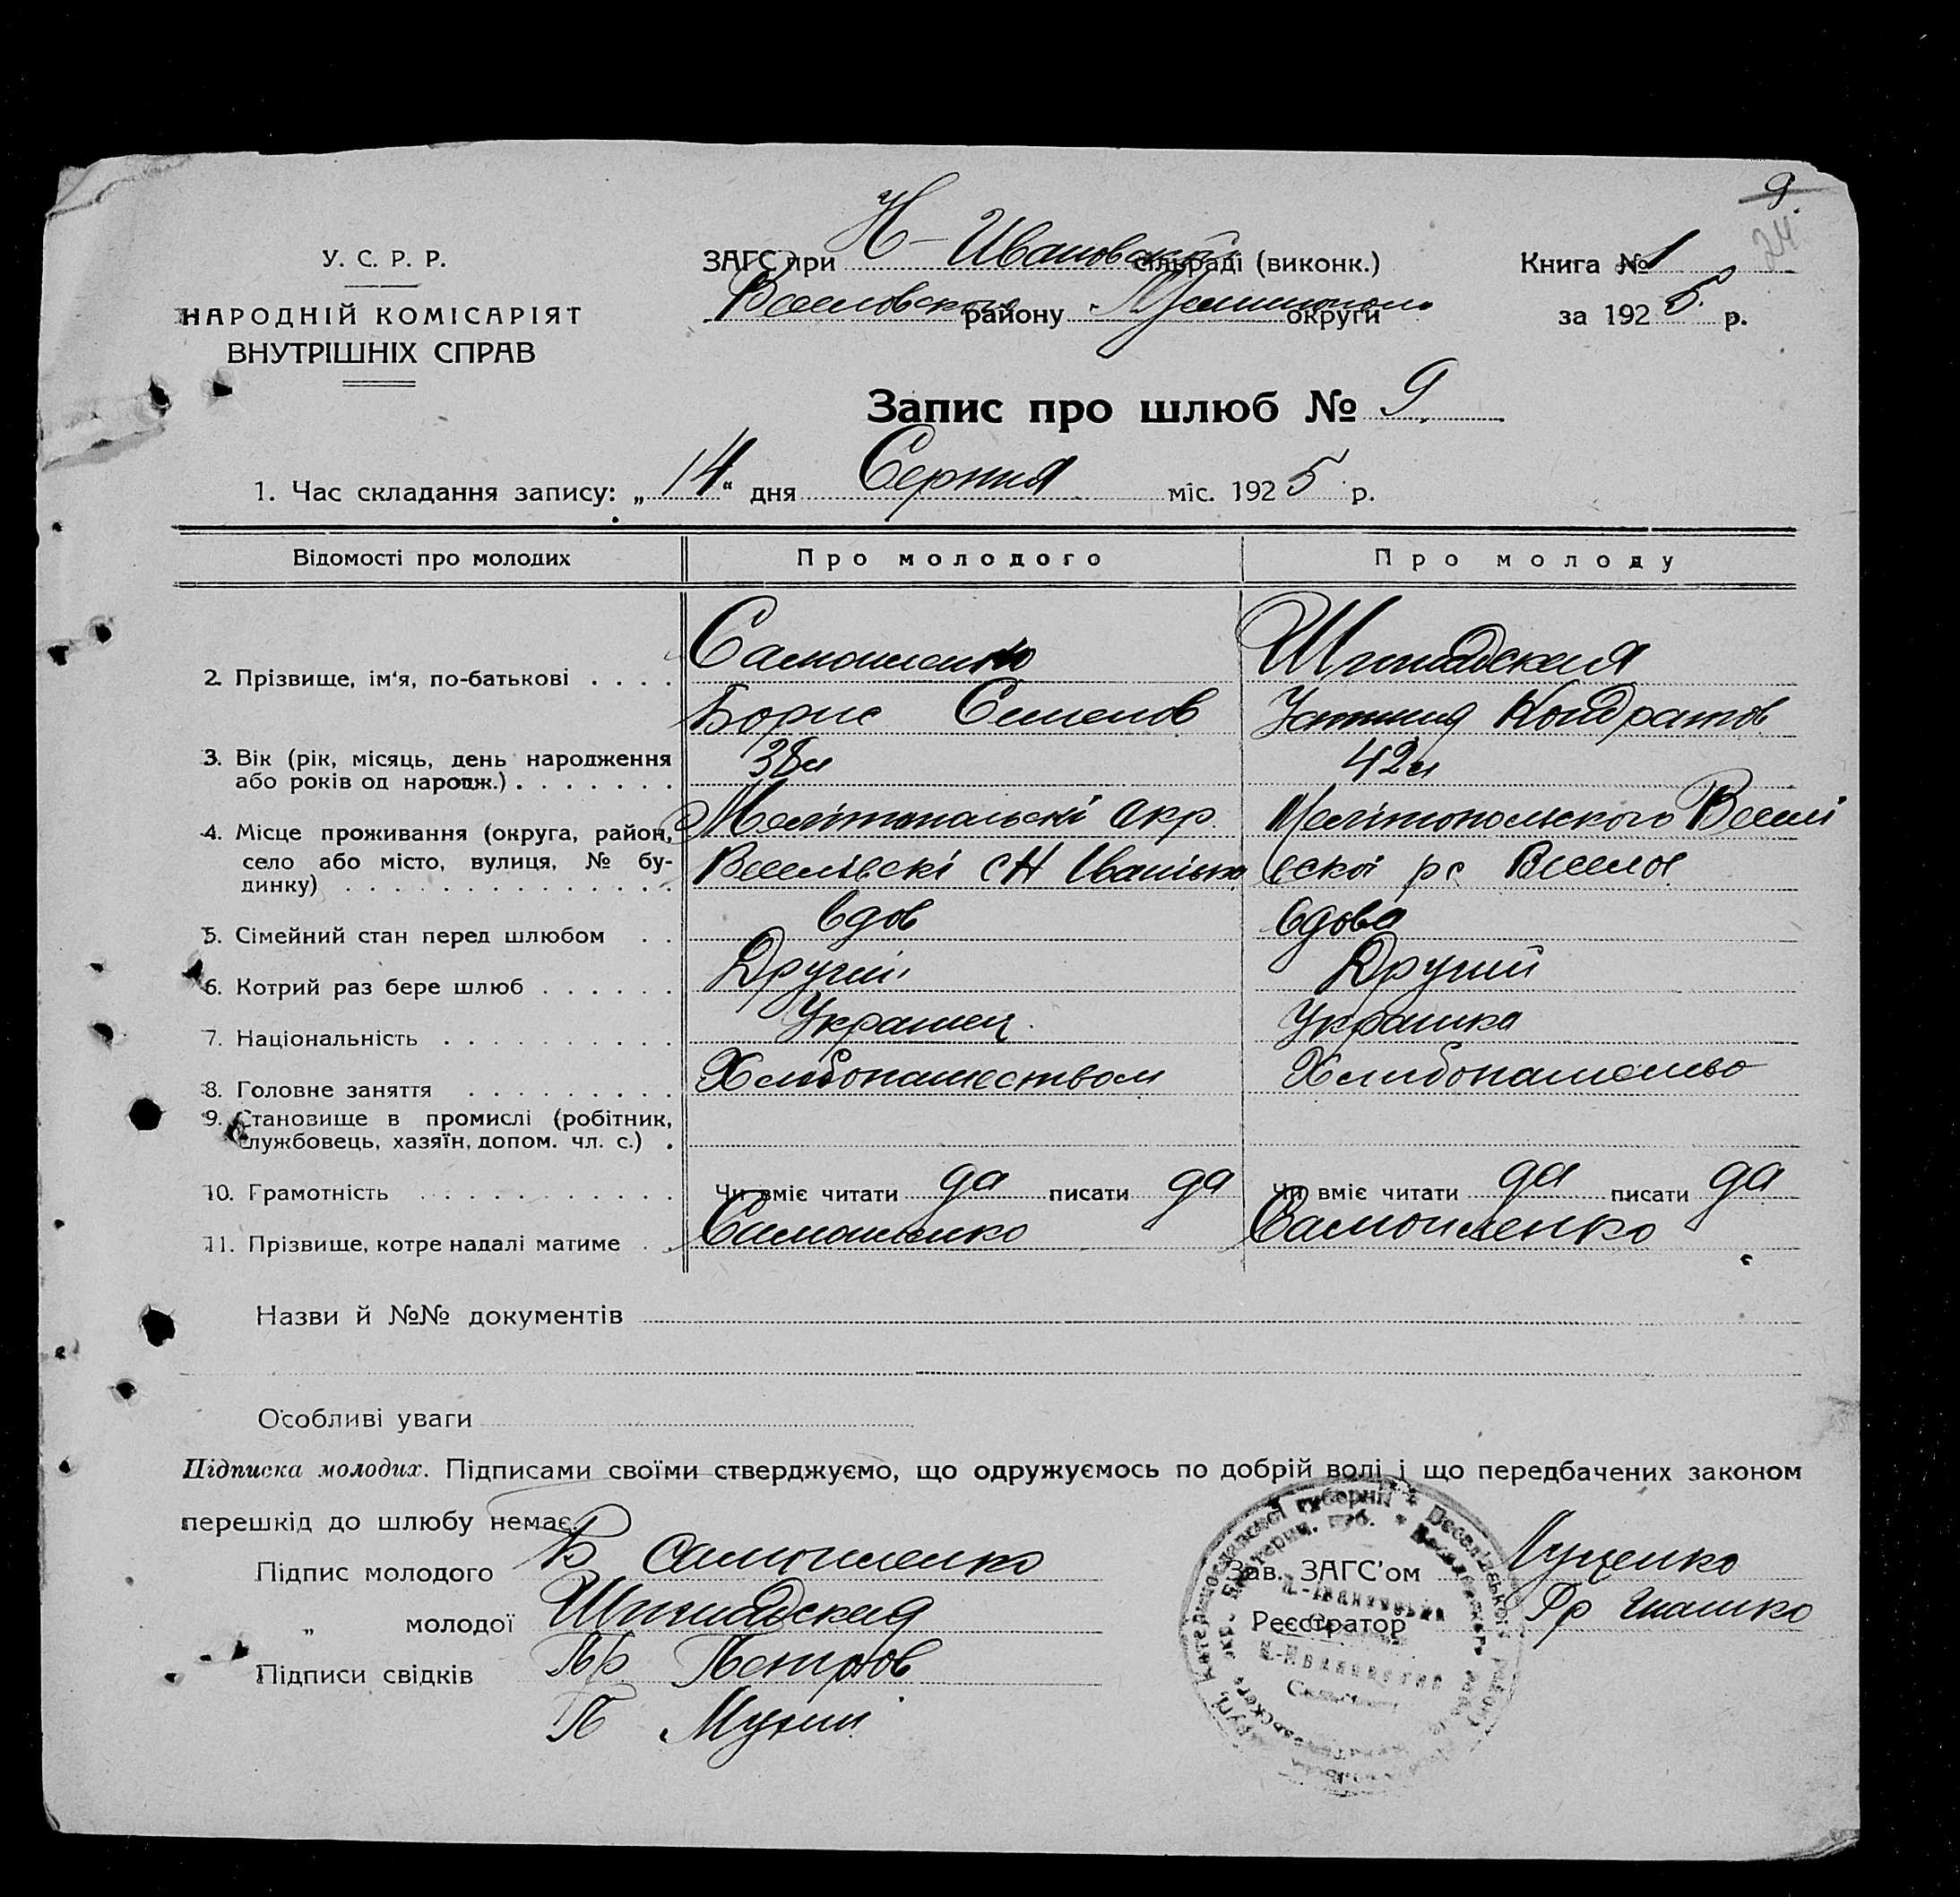 9.
24.
У. С. Р. Р.
НАРОДНІЙ КОМІСАРІЯТ
ВНУТРІШНІХ СПРАВ
ЗАГС при Н-Ивановській сільраді (виконк.)
району округи
Книга № 1
за 1925 р.
Запис про шлюб № 9.
1. Час складання запису: „14“ дня Серпня міс. 1925 р.
Відомості про молодих Про молодого Про молоду
2. Прізвище, ім'я, по-батькові . . . . Самойленко
Борис Семенов Кондратов
3. Вік (рік, місяць, день народження 42
або років од народж.) . . . . . . .
4. Місце проживання (округа, район, Мелітопольскі окр. Мелітопольского Веселі
село або місто, вулиця, № бу- Веселівскі с Н Іванівка вскоі рс Веселое
динку) . . . . . . . . . . . . . .
5. Сімейний стан перед шлюбом . . вдов вдова
6. Котрий раз бере шлюб . . . . . . Другий Другий
7. Національність . . . . . . . . . . Украинец. Украинка
8. Головне заняття . . . . . . . . . Хлибопашеством
9. Становище в промислі (робітник,
службовець, хазяїн, допом. чл. с.) .
10. Грамотність . . . . . . . . . . . Чи вміє читати да писати да Чи вміє читати да писати да
11. Прізвище, котре надалі матиме . . Самойленко Самойленко
Назви й №№ документів
Особливі уваги
Підписка молодих. Підписами своїми стверджуємо, що одружуємось по добрій волі і що передбачених законом
перешкід до шлюбу немає.
Підпис молодого Б Самойленко
„ молодої
Підписи свідків Петров
П
Зав. ЗАГС'ом Луценко
Реєстратор